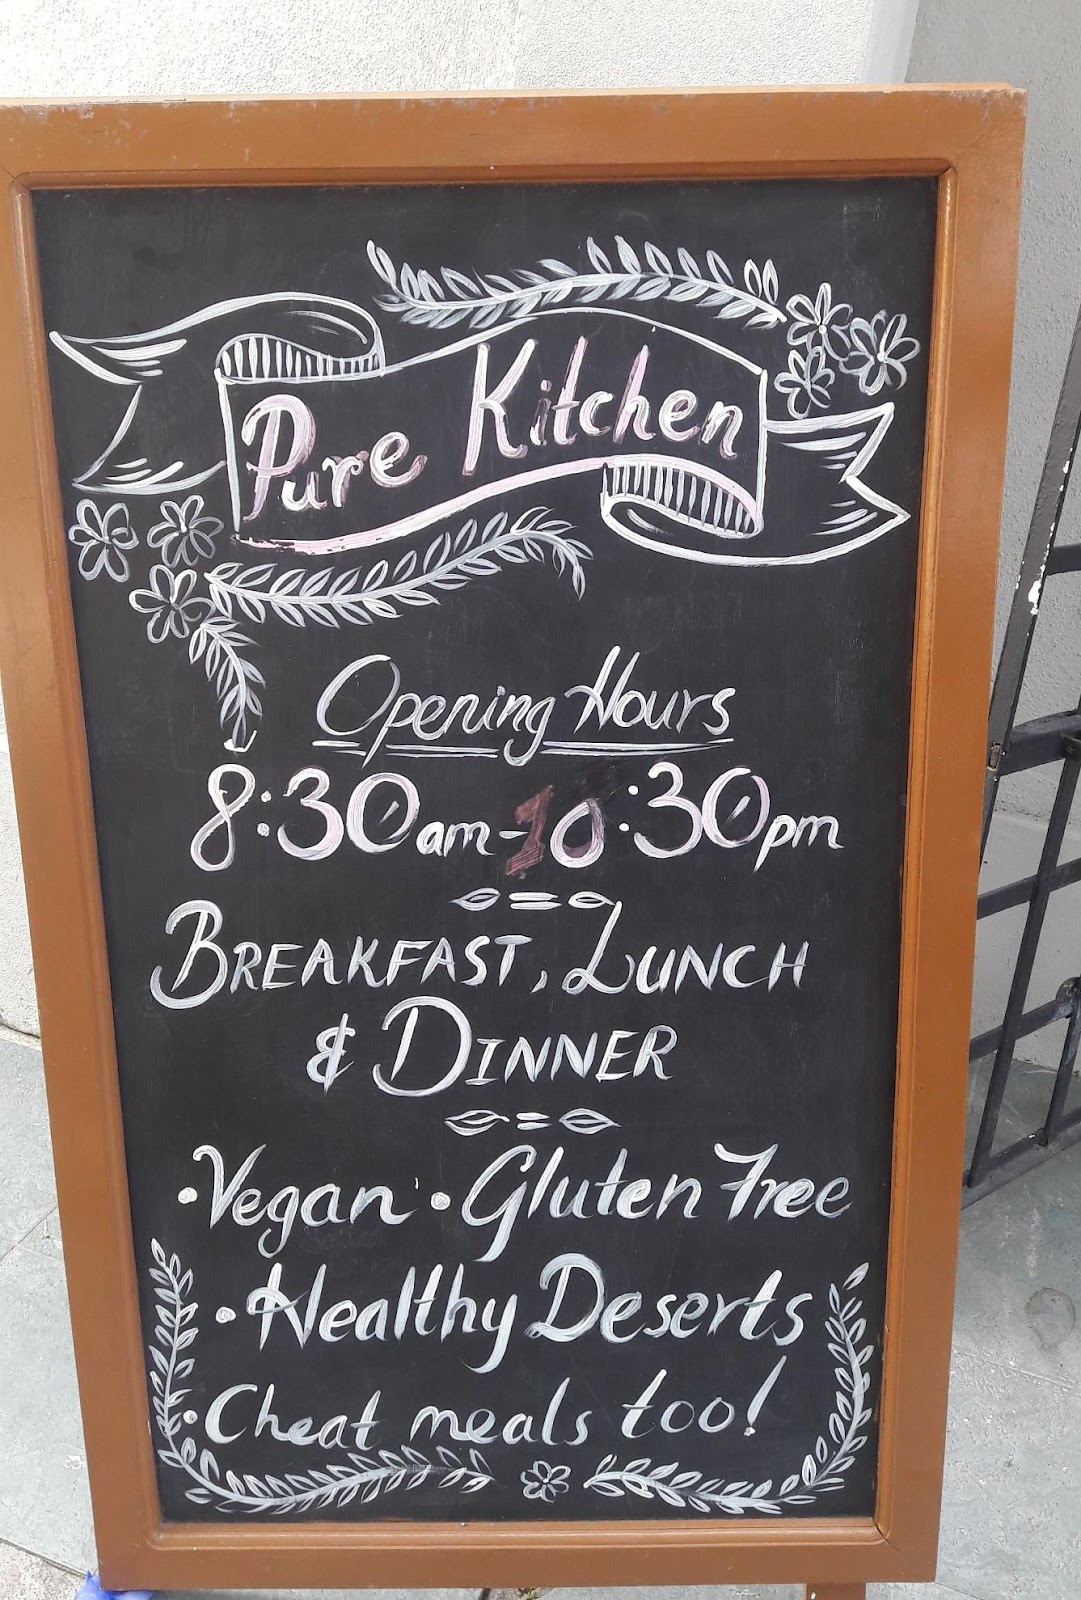 Pure Kitchen
Opening Hours
8:30am-10:30pm
BREAKFAST, LUNCH
& DINNER
·Vegan ·Gluten Free
·Healthy Deserts
·Cheat meals too!